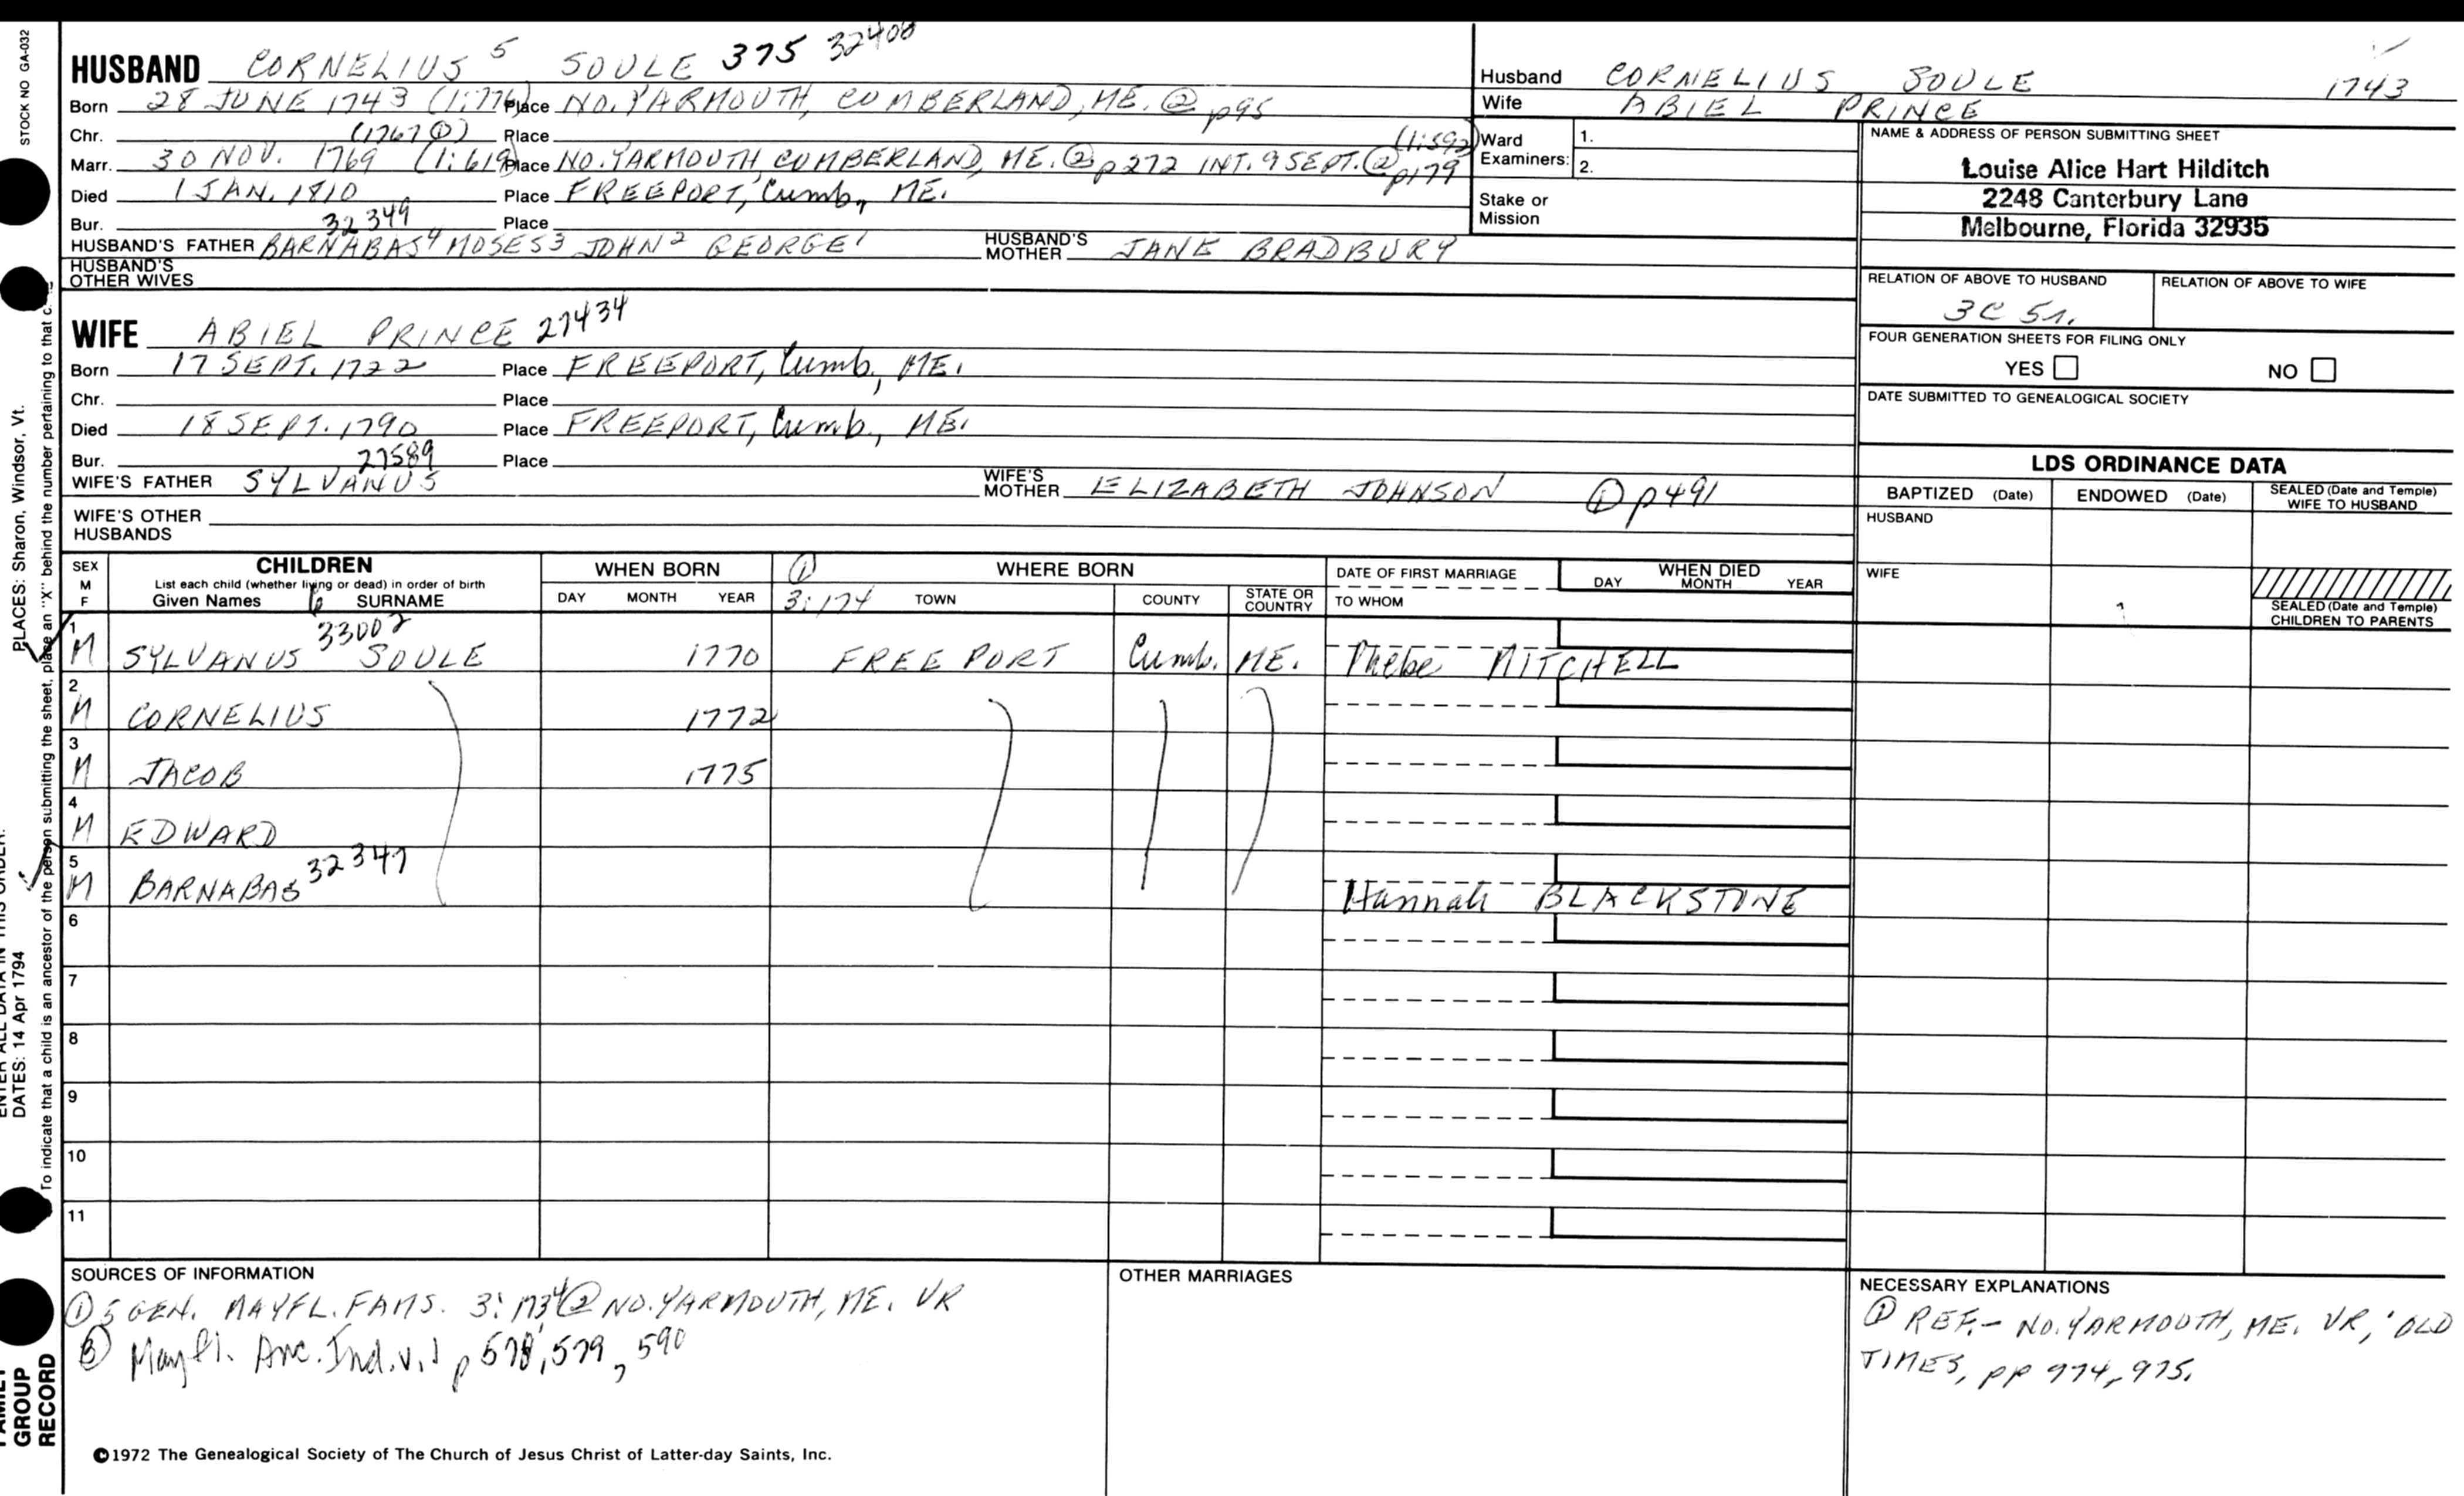 STOCK NO GA-032
HUSBAND CORNELIUS 5 SOULE 375 32408
Born 28 JUNE 1743 (1:776) Place NO. YARMOUTH, CUMBERLAND, ME. @ p95
Chr. (1767①) Place
Marr. 30 NOV. 1769 (1:619) Place NO. YARMOUTH, CUMBERLAND, ME. ② p272 INT. 9 SEPT. ② p179 (1:592)
Died 1 JAN. 1810 Place FREEPORT, Cumb., ME.
Bur. 32349 Place
HUSBAND'S FATHER BARNABAS4 MOSES3 JOHN2 GEORGE1 HUSBAND'S MOTHER JANE BRADBURY
HUSBAND'S OTHER WIVES
WIFE ABIEL PRINCE 27434
Born 17 SEPT. 1722 Place FREEPORT, Cumb., ME.
Chr. Place
Died 18 SEPT. 1790 Place FREEPORT, Cumb., ME.
Bur. 27589 Place
WIFE'S FATHER SYLVANUS WIFE'S MOTHER ELIZABETH JOHNSON ① p491
WIFE'S OTHER HUSBANDS
Husband CORNELIUS SOULE 1743
Wife ABIEL PRINCE
Ward Examiners: 1.
2.
Stake or Mission
NAME & ADDRESS OF PERSON SUBMITTING SHEET
Louise Alice Hart Hilditch
2248 Canterbury Lane
Melbourne, Florida 32935
RELATION OF ABOVE TO HUSBAND RELATION OF ABOVE TO WIFE
3C 5r.
FOUR GENERATION SHEETS FOR FILING ONLY
YES NO
DATE SUBMITTED TO GENEALOGICAL SOCIETY
LDS ORDINANCE DATA
BAPTIZED (Date) ENDOWED (Date) SEALED (Date and Temple) WIFE TO HUSBAND
HUSBAND
WIFE
SEALED (Date and Temple) CHILDREN TO PARENTS
SEX M F
CHILDREN
List each child (whether living or dead) in order of birth
Given Names 6 SURNAME
WHEN BORN
DAY MONTH YEAR
① WHERE BORN
3:174 TOWN COUNTY STATE OR COUNTRY
DATE OF FIRST MARRIAGE
TO WHOM
WHEN DIED
DAY MONTH YEAR
1 M SYLVANUS 33002 SOULE 1770 FREEPORT Cumb. ME. Phebe MITCHELL
2 M CORNELIUS 1772
3 M JACOB 1775
4 M EDWARD
5 M BARNABAS 32347 Hannah BLACKSTONE
6
7
8
9
10
11
SOURCES OF INFORMATION
① 5 GEN. MAYFL. FAMS. 3:173,4 ② NO. YARMOUTH, ME. VR
③ Mayfl. Anc. Ind. v.1 p 578, 579, 590
OTHER MARRIAGES
NECESSARY EXPLANATIONS
① REF.- NO. YARMOUTH, ME. VR, 'OLD
TIMES, pp 974, 975.
©1972 The Genealogical Society of The Church of Jesus Christ of Latter-day Saints, Inc.
PLACES: Sharon, Windsor, Vt.
ENTER ALL DATA IN THIS ORDER:
DATES: 14 Apr 1794
To indicate that a child is an ancestor of the person submitting the sheet, place an "X" behind the number pertaining to that
FAMILY GROUP RECORD